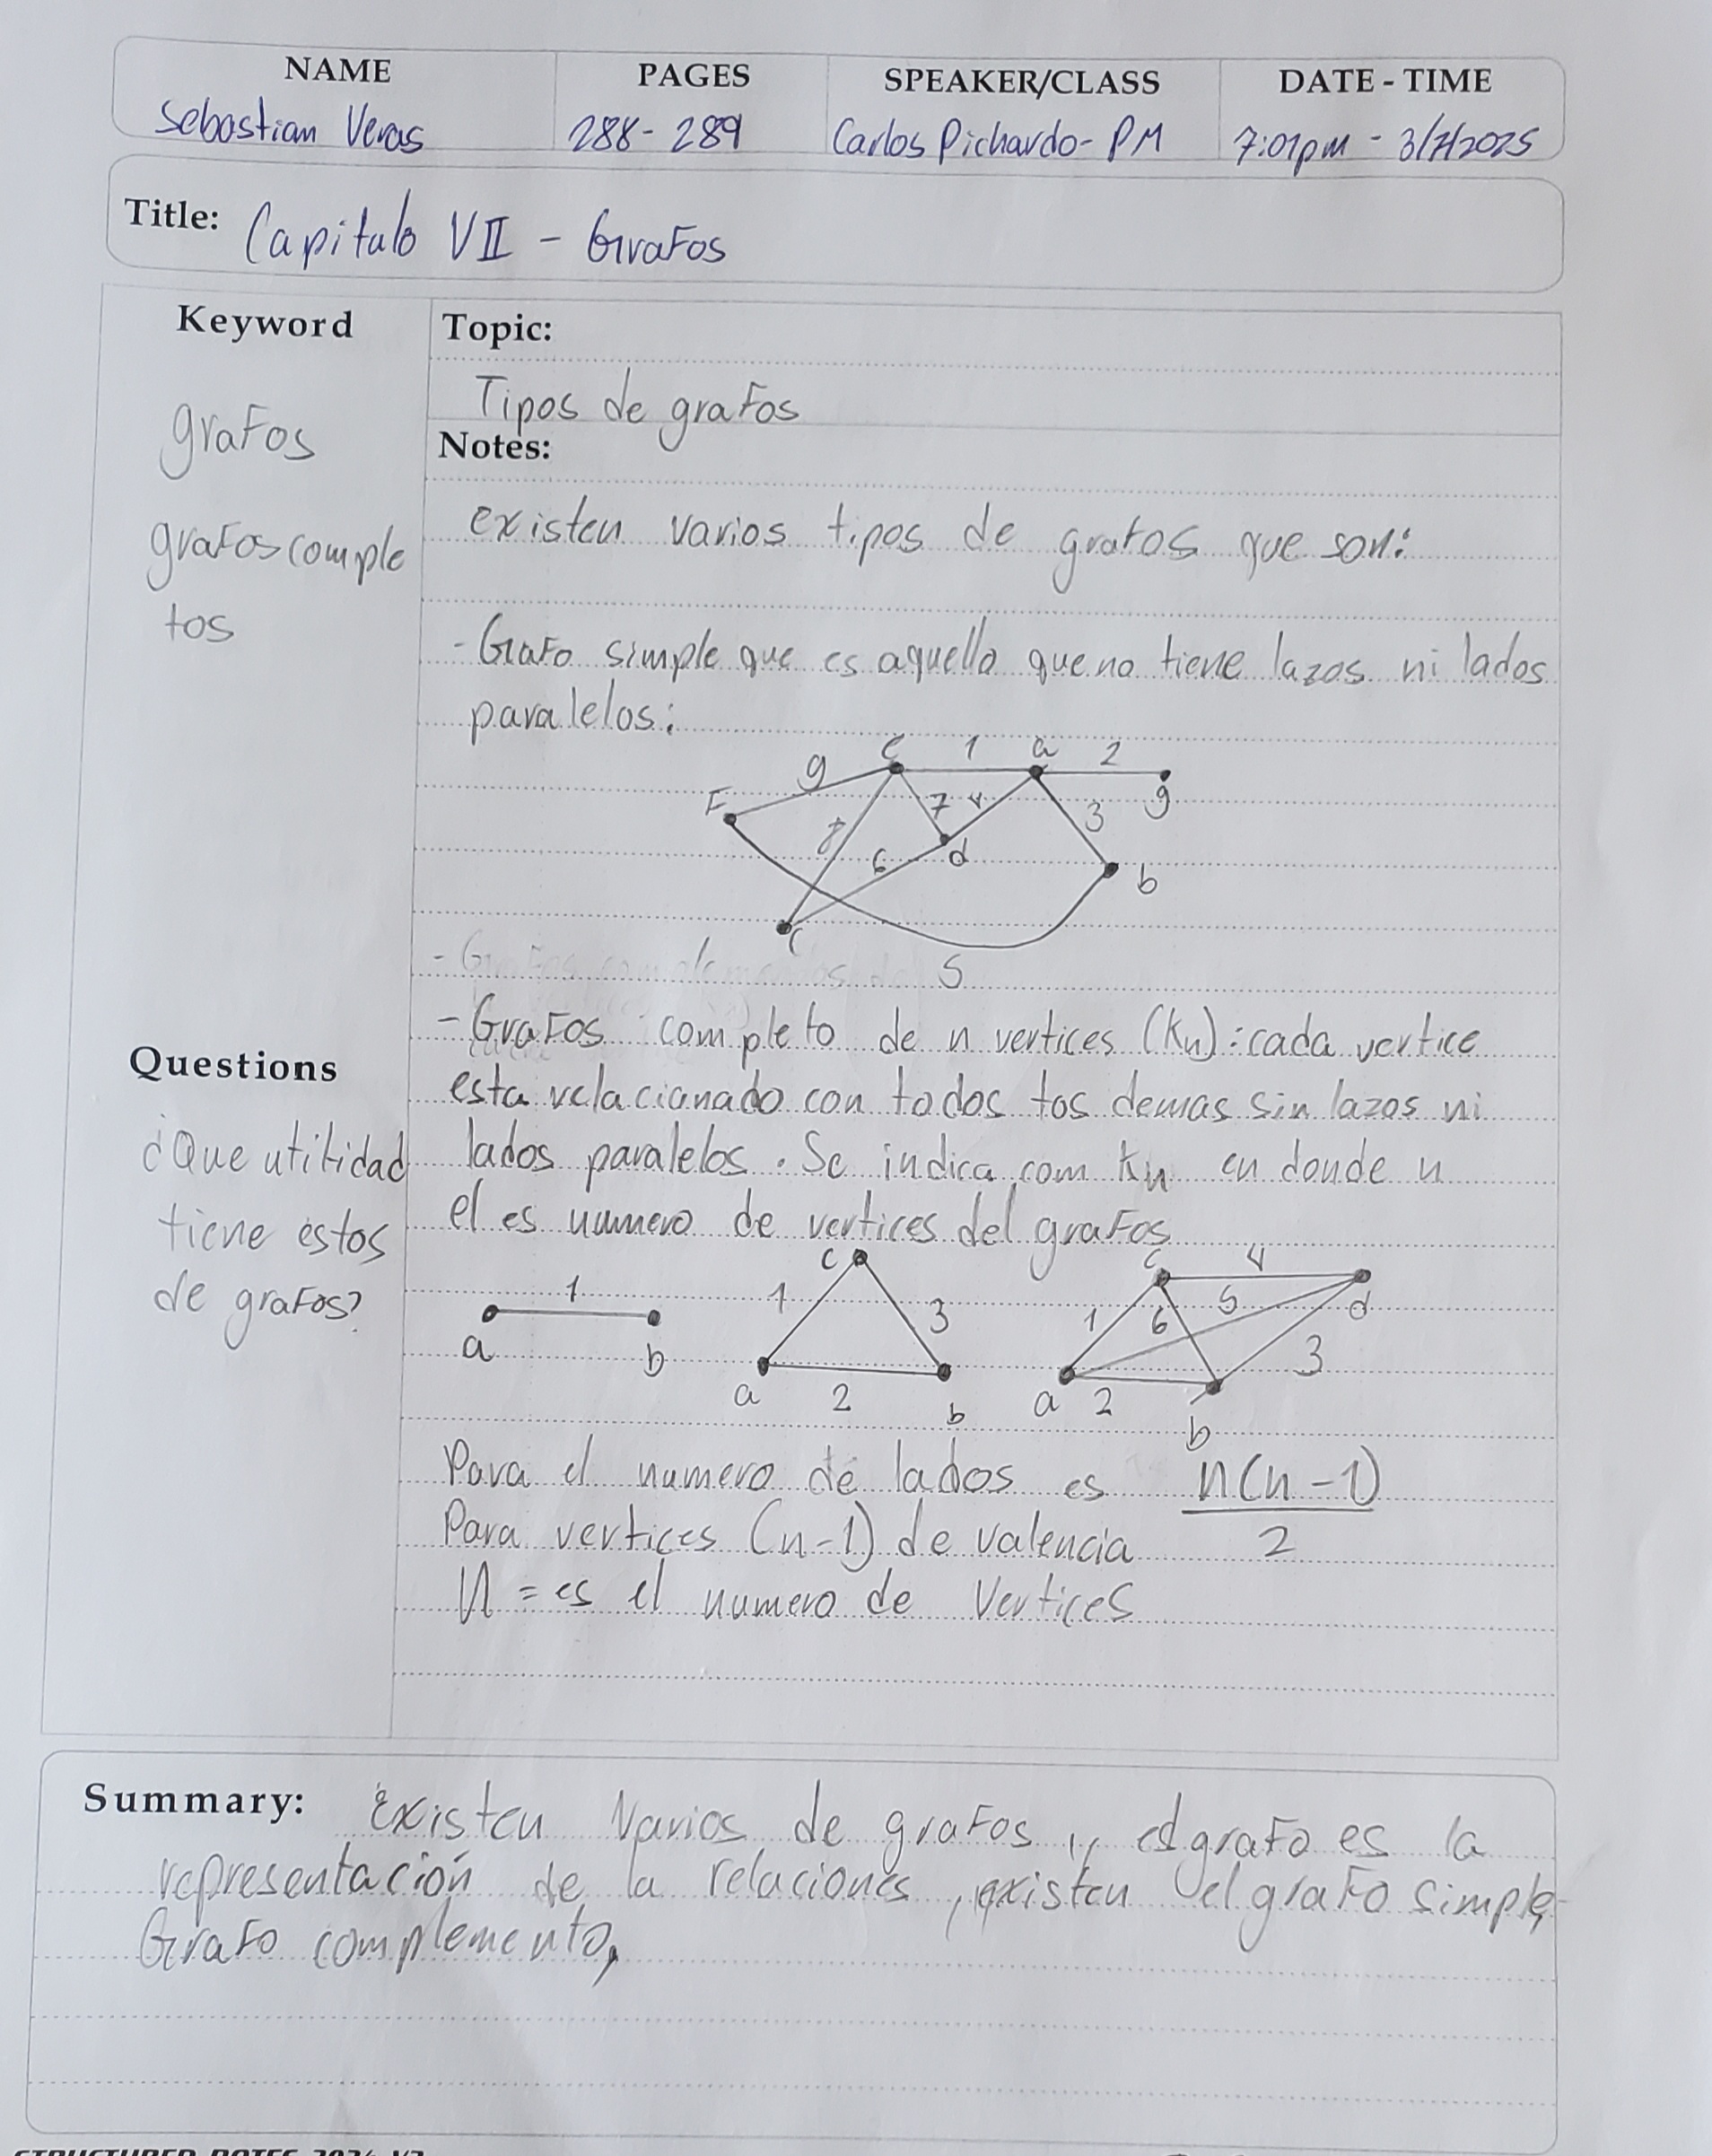 NAME PAGES SPEAKER/CLASS DATE - TIME
Sebastian Veras 288-289 Carlos Pichardo-PM 7:01pm - 3/7/2025
Title: Capitulo VII - Grafos
Keyword
grafos
grafos comple
tos
Topic:
Tipos de grafos
Notes:
existen varios tipos de grafos que son:
- Grafo simple que es aquello que no tiene lazos ni lados
paralelos:
e 1 a 2
g
F 7 4 3 g
8
6 d
b
c
5
- Grafos completo de n vertices (Kn): cada vertice
esta relacionado con todos tos demas sin lazos ni
lados paralelos. Se indica com Kn en donde n
el es numero de vertices del grafos
1
a b
c
1 3
a 2 b
c 4
1 6 5 d
3
a 2
b
Para el numero de lados es n(n-1)
2
Para vertices (n-1) de valencia
n = es el numero de Vertices
Questions
¿Que utilidad
tiene estos
de grafos?
Summary: Existen Varios de grafos ,, el grafo es la
representación de la relaciones, existen el grafo simple,
Grafo complemento,